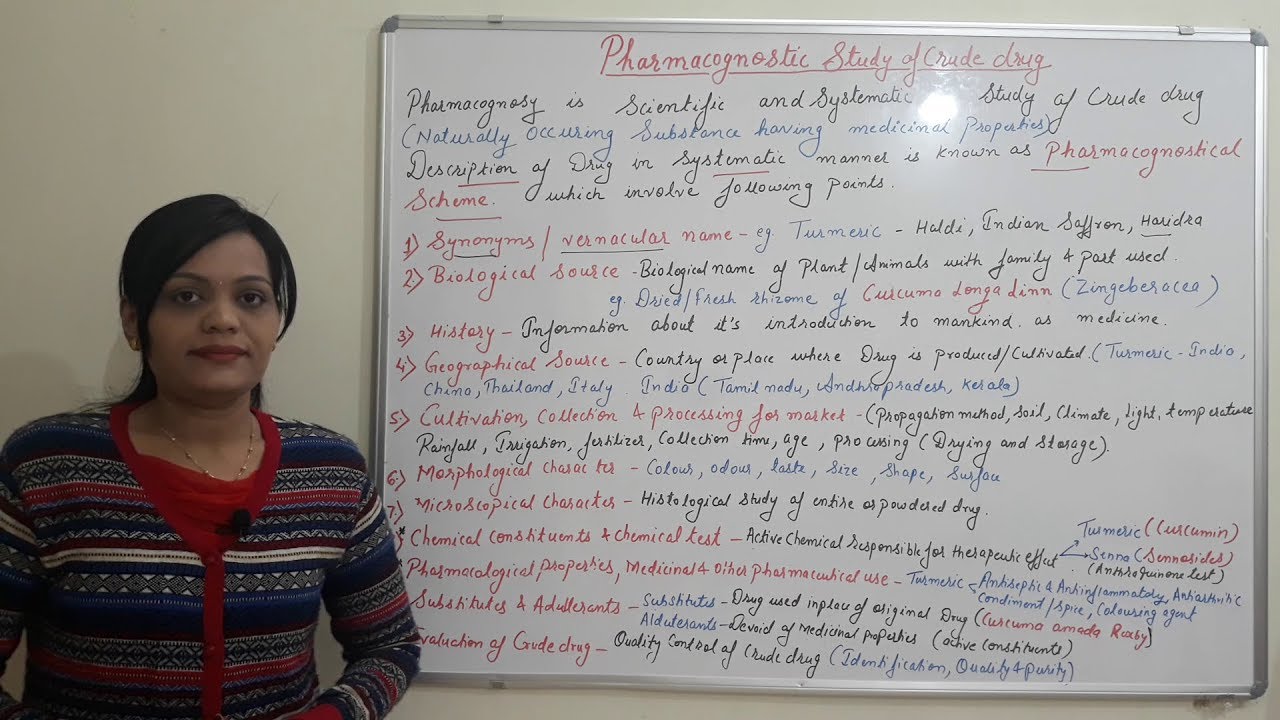 Pharmacognostic Study of Crude drug
Pharmacognosy is Scientific and Systematic Study of Crude drug
(Naturally Occuring Substance having medicinal Properties)
Description of Drug in Systematic manner is known as Pharmacognostical
Scheme. which involve following points.
1) Synonyms/vernacular name - eg. Turmeric - Haldi, Indian Saffron, Haridra
2) Biological Source - Biological name of Plant/Animals with family & part used.
eg. Dried/fresh rhizome of Curcuma longa Linn (Zingeberacea)
3) History - Information about it's introduction to mankind. as medicine.
4) Geographical Source - Country or place where Drug is produced/Cultivated. (Turmeric - India,
China, Thailand, Italy India (Tamil nadu, Andhrapradesh, Kerala)
5) Cultivation, Collection & processing for market - (Propagation method, Soil, Climate, light, temperature
Rainfall, Irrigation, fertilizer, Collection time, age, processing (Drying and Storage).
6) Morphological Character - Colour, odour, taste, Size, Shape, Surface
7) Microscopical Character - Histological Study of entire or powdered drug.
Chemical Constituents & Chemical test - Active Chemical responsible for therapeutic effect. Turmeric (Curcumin)
Senna (Sennosides)
(Anthraquinone test)
Pharmacological properties, Medicinal & Other pharmaceutical use - Turmeric - Antiseptic & Antiinflammatory, Antiarthritic
Condiment/Spice, Colouring agent
Substitutes & Adulterants - Substitutes - Drug used inplace of original Drug (Curcuma amada Roxby)
Alduterants - Devoid of Medicinal properties (active constituents)
Evaluation of Crude drug - Quality Control of Crude drug (Identification, Quality & purity)